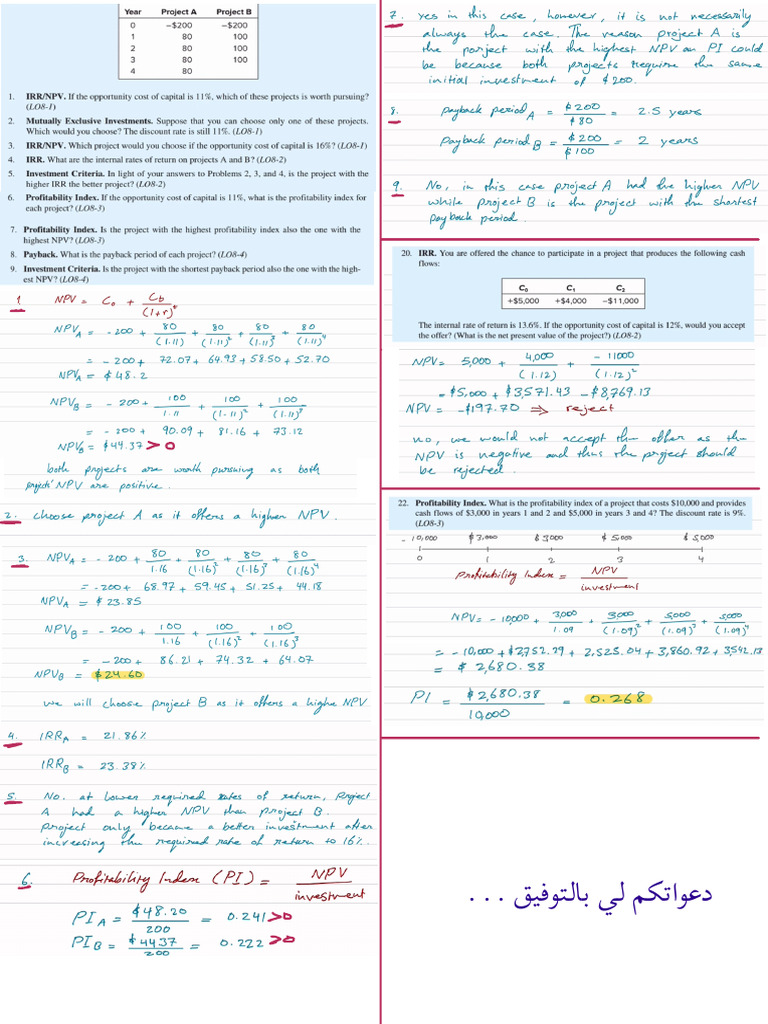 Year Project A Project B
0 –$200 –$200
1 80 100
2 80 100
3 80 100
4 80
1. IRR/NPV. If the opportunity cost of capital is 11%, which of these projects is worth pursuing?
(LO8-1)
2. Mutually Exclusive Investments. Suppose that you can choose only one of these projects.
Which would you choose? The discount rate is still 11%. (LO8-1)
3. IRR/NPV. Which project would you choose if the opportunity cost of capital is 16%? (LO8-1)
4. IRR. What are the internal rates of return on projects A and B? (LO8-2)
5. Investment Criteria. In light of your answers to Problems 2, 3, and 4, is the project with the
higher IRR the better project? (LO8-2)
6. Profitability Index. If the opportunity cost of capital is 11%, what is the profitability index for
each project? (LO8-3)
7. Profitability Index. Is the project with the highest profitability index also the one with the
highest NPV? (LO8-3)
8. Payback. What is the payback period of each project? (LO8-4)
9. Investment Criteria. Is the project with the shortest payback period also the one with the high-
est NPV? (LO8-4)
1 NPV = C₀ + Cb/(1+r)ᵗ
NPV_A = -200 + 80/(1.11) + 80/(1.11)² + 80/(1.11)³ + 80/(1.11)⁴
= -200 + 72.07 + 64.93 + 58.50 + 52.70
NPV_A = $48.2
NPV_B = -200 + 100/1.11 + 100/(1.11)² + 100/(1.11)³
= -200 + 90.09 + 81.16 + 73.12
NPV_B = $44.37 > 0
both projects are worth pursuing as both
projects' NPV are positive.
2. choose project A as it offers a higher NPV.
3. NPV_A = -200 + 80/1.16 + 80/(1.16)² + 80/(1.16)³ + 80/(1.16)⁴
= -200 + 68.97 + 59.45 + 51.25 + 44.18
NPV_A = $23.85
NPV_B = -200 + 100/1.16 + 100/(1.16)² + 100/(1.16)³
= -200 + 86.21 + 74.32 + 64.07
NPV_B = $24.60
we will choose project B as it offers a highe NPV
4. IRR_A = 21.86%
IRR_B = 23.38%
5. No. at lower required rates of return, Project
A had a higher NPV than project B.
project only became a better investment after
increasing the required rate of return to 16%.
6. Profitability Index (PI) = NPV/investment
PI_A = $48.20/200 = 0.241 >0
PI_B = $44.37/200 = 0.222 >0
7. Yes in this case, however, it is not necessarily
always the case. The reason project A is
the porject with the highest NPV an PI could
be because both projects require the same
initial investment of $200.
8. payback period_A = $200/$80 = 2.5 years
Payback period_B = $200/$100 = 2 years
9. No, in this case project A had the higher NPV
while project B is the project with the shortest
payback period.
20. IRR. You are offered the chance to participate in a project that produces the following cash
flows:
C₀ C₁ C₂
+$5,000 +$4,000 –$11,000
The internal rate of return is 13.6%. If the opportunity cost of capital is 12%, would you accept
the offer? (What is the net present value of the project?) (LO8-2)
NPV = 5,000 + 4,000/(1.12) + -11000/(1.12)²
= $5,000 + $3,571.43 - $8,769.13
NPV = -$197.70 ⇒ reject
no, we would not accept the offer as the
NPV is negative and thus the project should
be rejected.
22. Profitability Index. What is the profitability index of a project that costs $10,000 and provides
cash flows of $3,000 in years 1 and 2 and $5,000 in years 3 and 4? The discount rate is 9%.
(LO8-3)
-10,000 $3,000 $3000 $5000 $5,000
0 1 2 3 4
Profitability Index = NPV/investment
NPV = -10,000 + 3,000/1.09 + 3,000/(1.09)² + 5,000/(1.09)³ + 5,000/(1.09)⁴
= -10,000 + $2,752.29 + 2,525.04 + 3,860.92 + 3542.13
= $2,680.38
PI = $2,680.38/10,000 = 0.268
دعواتكم لي بالتوفيق ...